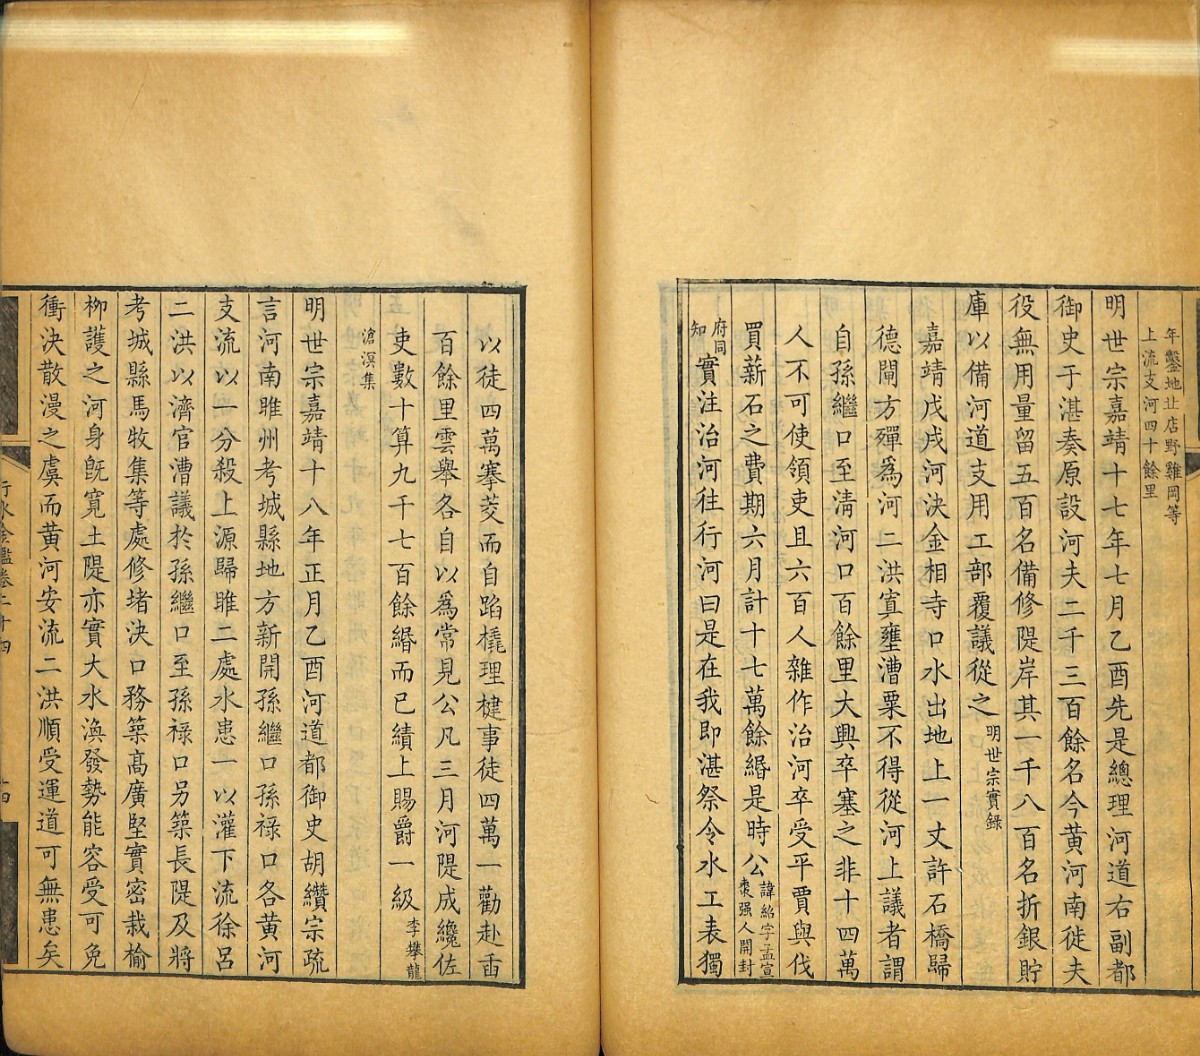 年鑿地丘店野雞岡等
上流支河四十餘里
明世宗嘉靖十七年七月乙酉先是總理河道右副都
御史于湛奏原設河夫二千三百餘名今黄河南徙夫
役無用量留五百名備修隄岸其一千八百名折銀貯
庫以備河道支用工部覆議從之明世宗實錄
嘉靖戊戌河決金相寺口水出地上一丈許石橋歸
德閘方殫為河二洪寘壅漕粟不得從河上議者謂
自孫繼口至淸河口百餘里大興卒塞之非十四萬
人不可使領吏且六百人雜作治河卒受平賈與伐
買薪石之費期六月計十七萬餘緡是時公諱紹字孟宣
棗强人開封
府同
知實注治河往行河曰是在我即湛祭令水工表獨
以徒四萬搴茭而自蹈橇理楗事徒四萬一勸赴臿
百餘里雲舉各自以為常見公凡三月河隄成纔佐
吏數十算九千七百餘緡而已績上賜爵一級李攀龍
滄溟集
明世宗嘉靖十八年正月乙酉河道都御史胡纘宗疏
言河南睢州考城縣地方新開孫繼口孫禄口各黄河
支流以一分殺上源歸睢二處水患一以灌下流徐呂
二洪以濟官漕議於孫繼口至孫禄口另築長隄及將
考城縣馬牧集等處修堵決口務築高廣堅實密栽榆
柳護之河身旣寬土隄亦實大水渙發勢能容受可免
衝決散漫之虞而黄河安流二洪順受運道可無患矣
行水金鑑卷二十四
十四